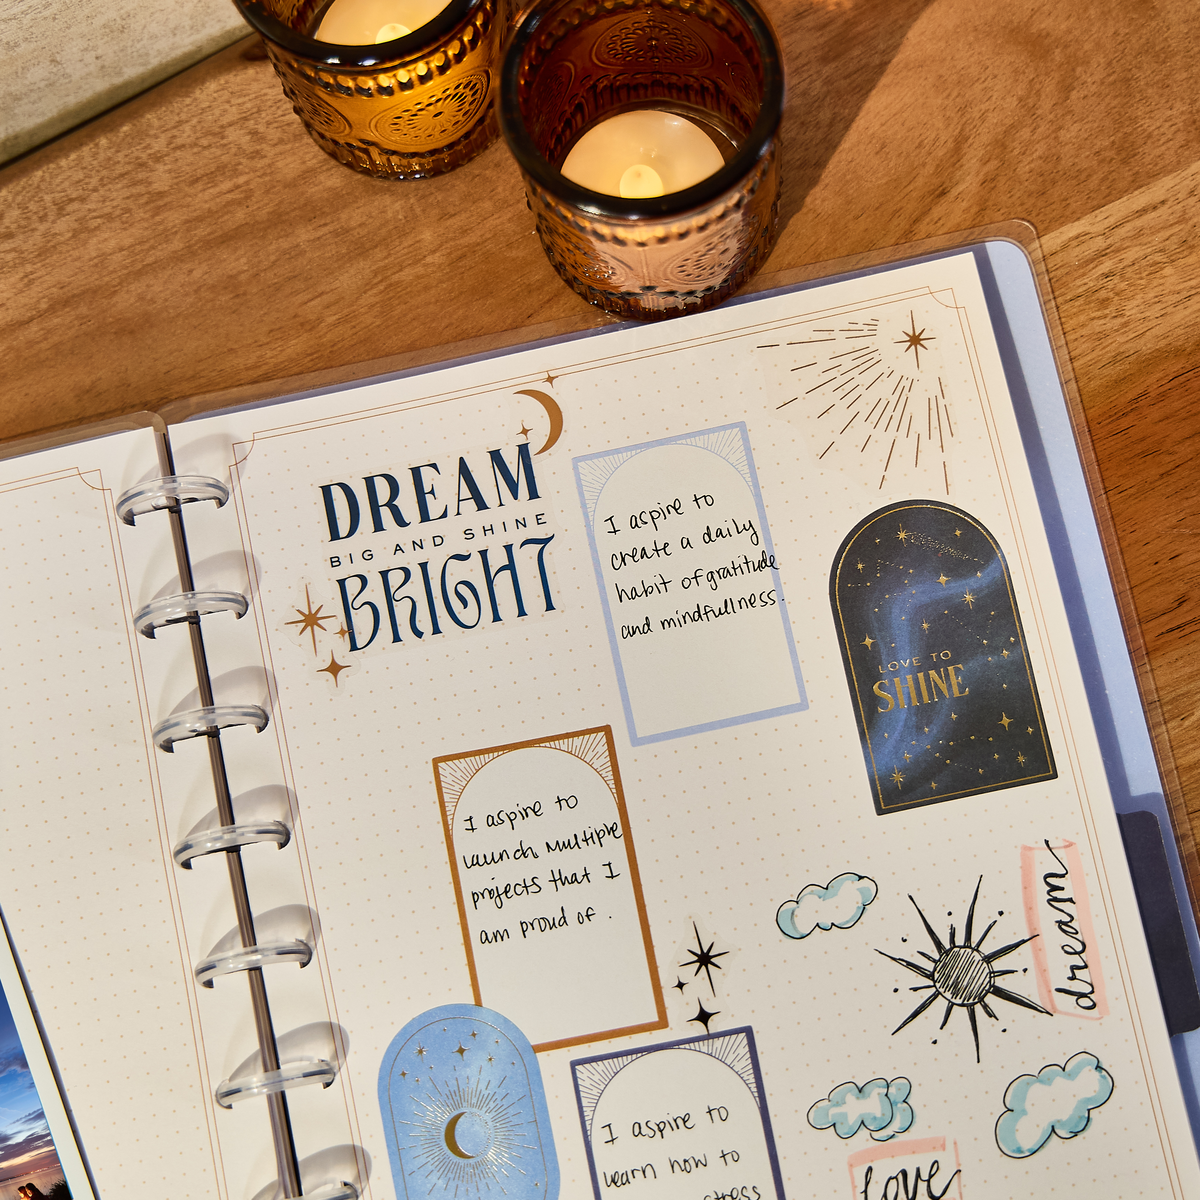 DREAM
BIG AND SHINE
BRIGHT
I aspire to
create a daily
habit of gratitude
and mindfullness.
LOVE TO
SHINE
I aspire to
launch multiple
projects that I
am proud of.
dream
I aspire to
learn how to
stress
love